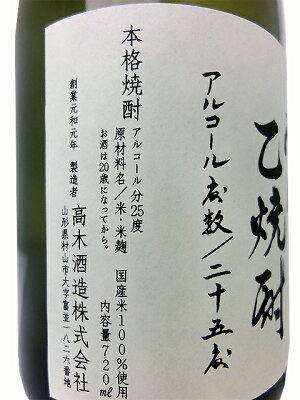 乙焼酎
アルコール度数/二十五度
本格焼酎
アルコール分25度
原材料名/米・米麹 国産米100%使用
お酒は20歳になってから。 内容量720ml
創業元和元年 製造者 高木酒造株式会社
山形県村山市大字富並一八二六番地